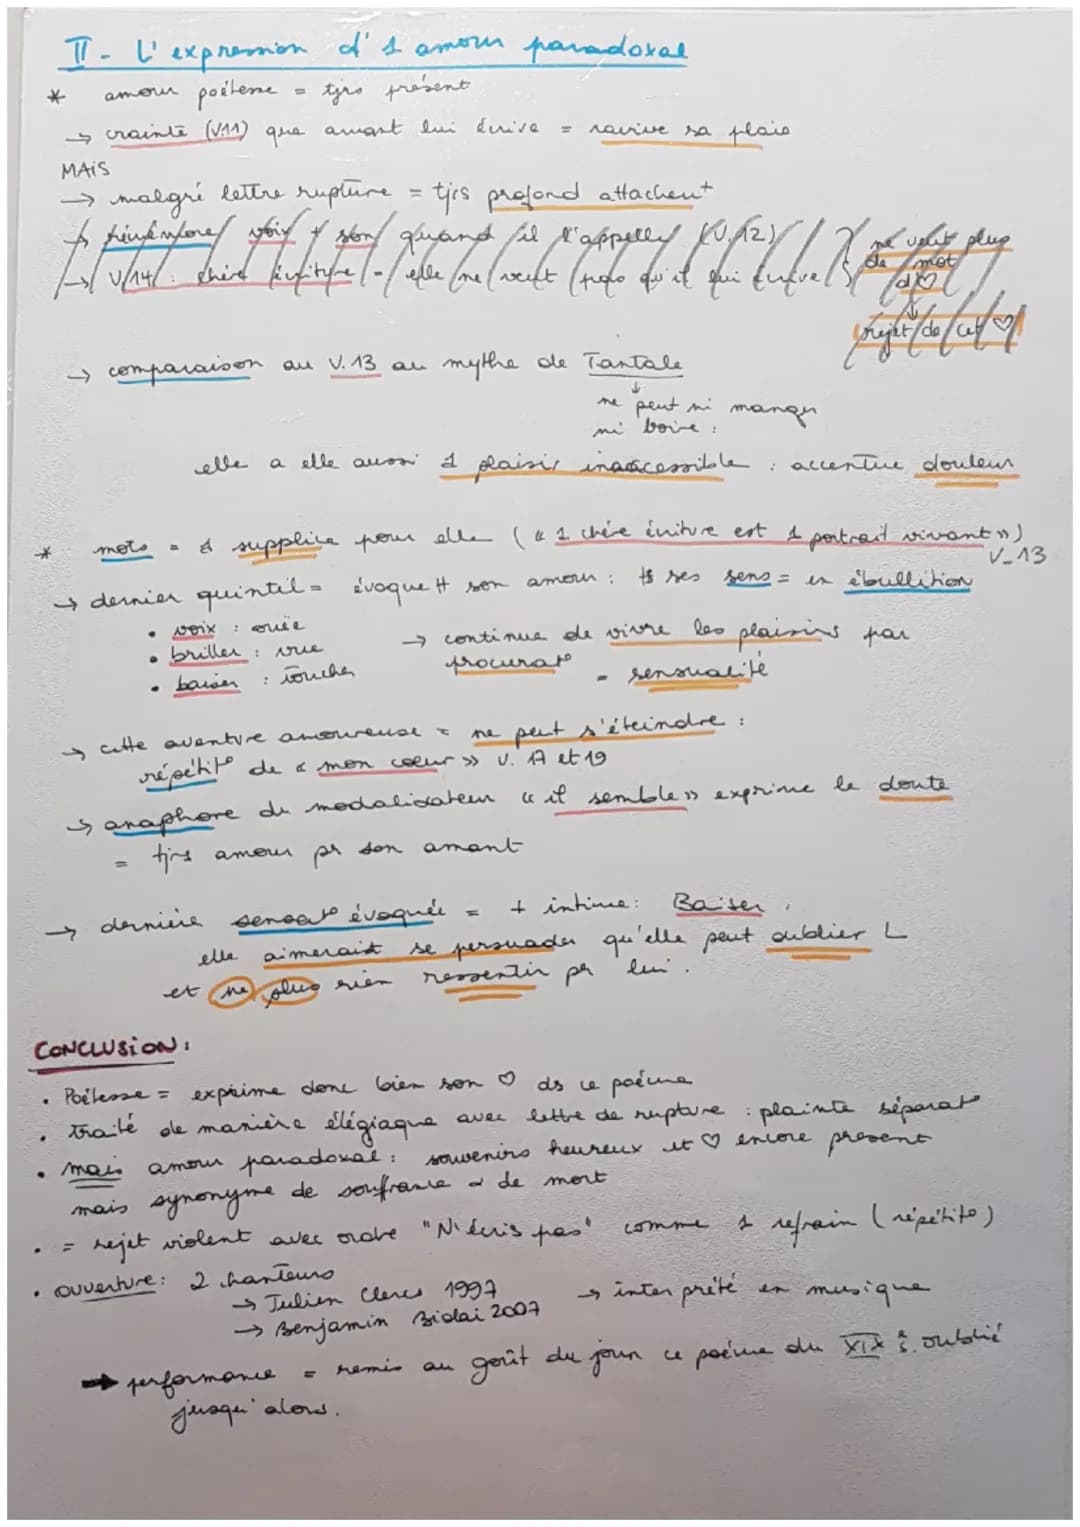 II - L'expression d'1 amour paradoxal
* amour poétesse = tjrs présent
→ crainte (V.11) que amant lui écrive = ravive sa plaie
MAiS
→ malgré lettre rupture = tjrs profond attachem^t
→ voix + son quand il l'appelle (V.12) } ne veut plus
→ V.14 : chère écriture = elle ne veut pas qu'il lui écrive } de mot
d'♡
↓
rejet de cet ♡
→ comparaison au V.13 au mythe de Tantale
↓
ne peut ni manger
ni boire :
elle a elle aussi 1 plaisir inaccessible : accentue douleur
* mots = 1 supplice pour elle (« 1 chère écriture est 1 portrait vivant »)
V_13
→ dernier quintil = évoque son amour : ts ses sens = en ébullition
• voix : ouïe
• briller : vue
• baiser : toucher
→ continue de vivre les plaisirs par
procurat°
= sensualité
→ cette aventure amoureuse = ne peut s'éteindre :
répétit° de « mon coeur » V. 17 et 19
→ anaphore du modalisateur « il semble » exprime le doute
= tjrs amour pr son amant
→ dernière sensat° évoquée = + intime : Baiser,
elle aimerait se persuader qu'elle peut oublier L
et ne plus rien ressentir pr lui.
CONCLUSiON :
• Poétesse = exprime donc bien son ♡ ds ce poème
• traité de manière élégiaque avec lettre de rupture : plainte séparat°
• mais amour paradoxal : souvenirs heureux et ♡ encore présent
mais synonyme de soufrance & de mort
• = rejet violent avec ordre "N'écris pas" comme 1 refrain (répétit°)
• ouverture : 2 chanteurs
→ Julien Clerc 1997
→ Benjamin Biolai 2007
→ interprété en musique
→ performance = remis au goût du jour ce poème du XIX è s. oublié
jusqu'alors.